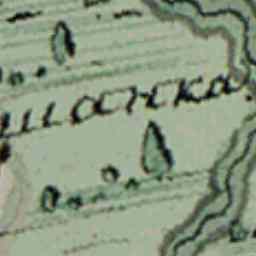 шанка.